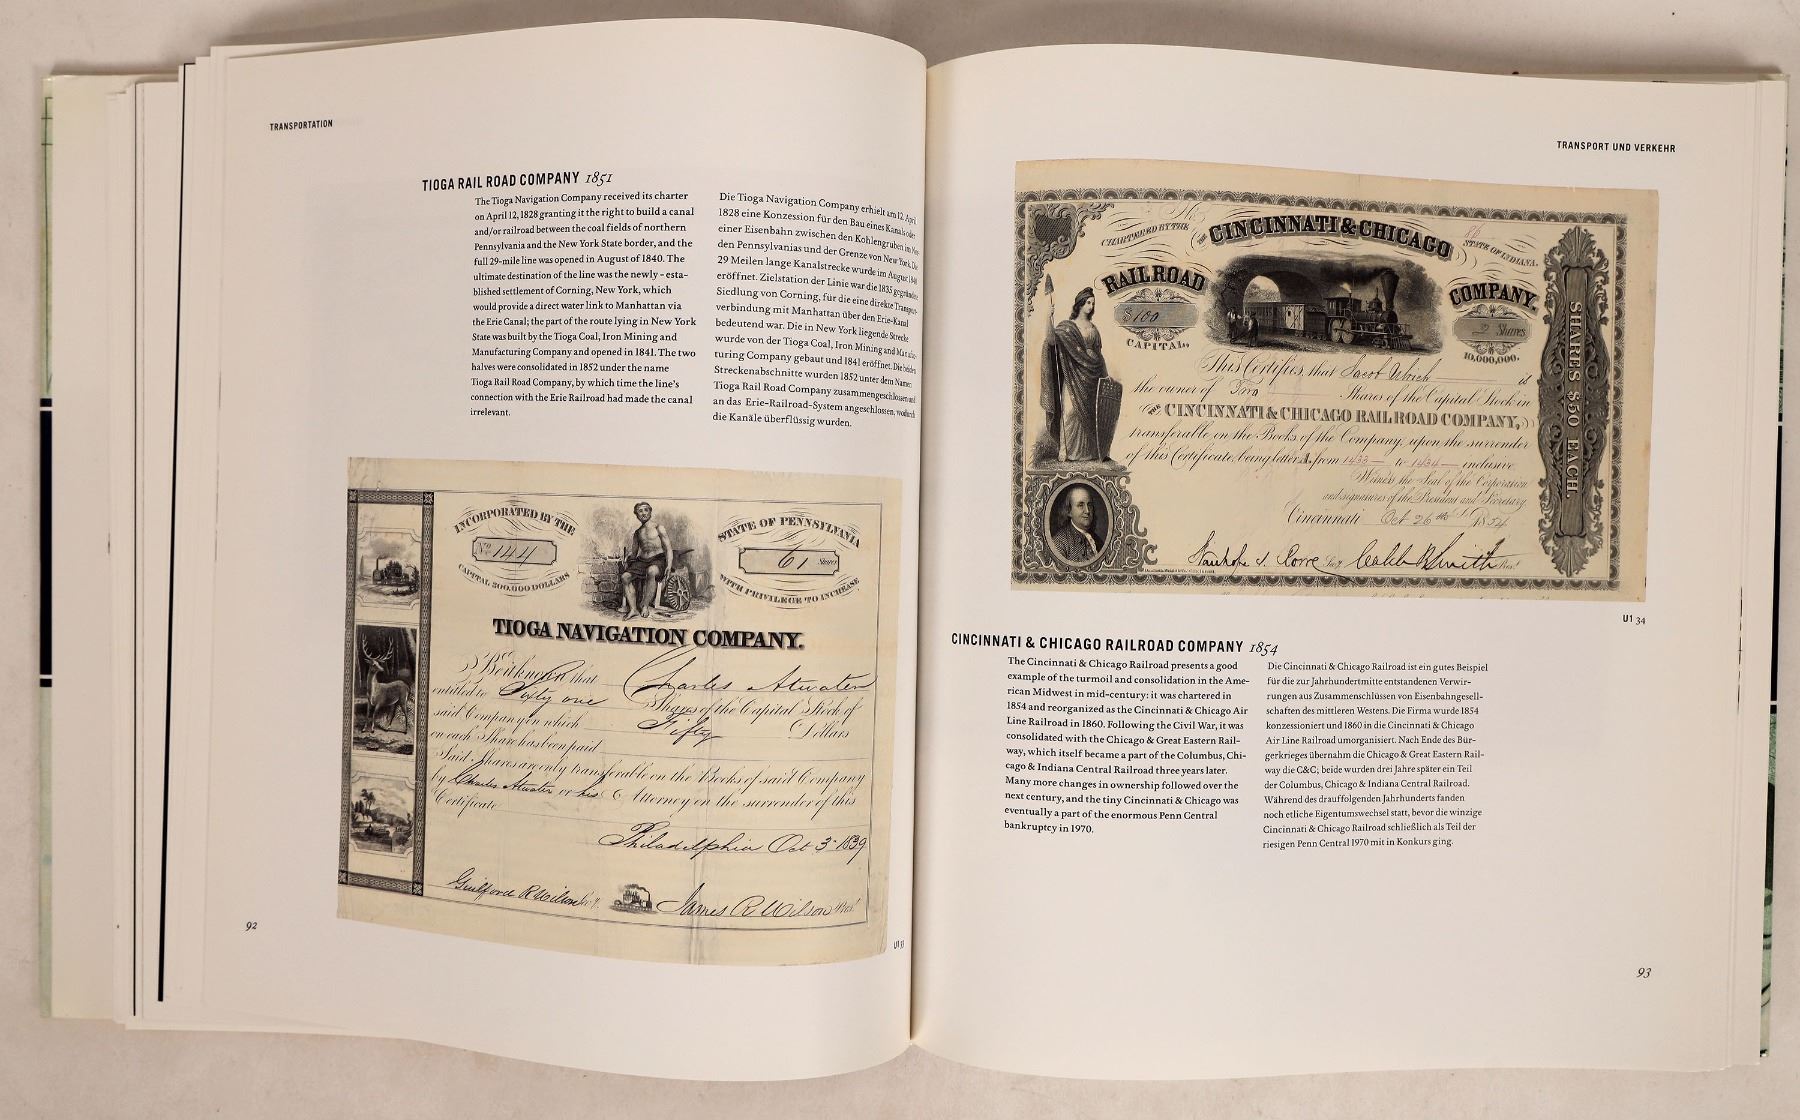 TRANSPORTATION
TIOGA RAIL ROAD COMPANY 1851
The Tioga Navigation Company received its charter
on April 12, 1828 granting it the right to build a canal
and/or railroad between the coal fields of northern
Pennsylvania and the New York State border, and the
full 29-mile line was opened in August of 1840. The
ultimate destination of the line was the newly-esta-
blished settlement of Corning, New York, which
would provide a direct water link to Manhattan via
the Erie Canal; the part of the route lying in New York
State was built by the Tioga Coal, Iron Mining and
Manufacturing Company and opened in 1841. The two
halves were consolidated in 1852 under the name
Tioga Rail Road Company, by which time the line's
connection with the Erie Railroad had made the canal
irrelevant.
Die Tioga Navigation Company erhielt am 12. April
1828 eine Konzession für den Bau eines Kanals oder
einer Eisenbahn zwischen den Kohlengruben im
den Pennsylvanias und der Grenze von New York. Die
29 Meilen lange Kanalstrecke wurde im August 1840
eröffnet. Zielstation der Linie war die 1835 gegründete
Siedlung von Corning, für die eine direkte
verbindung mit Manhattan über den Erie-Kanal
bedeutend war. Die in New York liegende Strecke
wurde von der Tioga Coal, Iron Mining and
turing Company gebaut und 1841 eröffnet. Die beiden
Streckenabschnitte wurden 1852 unter dem Namen
Tioga Rail Road Company zusammengeschlossen und
an das Erie-Railroad-System angeschlossen, wodurch
die Kanäle überflüssig wurden.
INCORPORATED BY THE
STATE OF PENNSYLVANIA
No. 144
61 Shares
CAPITAL 300.000 DOLLARS
WITH PRIVILEGE TO INCREASE
TIOGA NAVIGATION COMPANY.
Be it known that Charles Atwater
entitled to Sixty one Shares of the Capital Stock of
said Company on which Fifty Dollars
on each Share has been paid
Said Shares are only transferable on the Books of said Company
by Charles Atwater or his Attorney on the surrender of this
Certificate
Philadelphia Oct 3 1839
Guilford R Wilson
James R Wilson Prest
U1 33
92
TRANSPORT UND VERKEHR
The
86
CHARTERED BY THE
THE CINCINNATI & CHICAGO
STATE OF INDIANA.
RAILROAD
COMPANY.
$100
2 Shares
CAPITAL,
10,000,000.
SHARES $50 EACH.
This Certifies, that Jacob is
the owner of Two Shares of the Capital Stock in
THE CINCINNATI & CHICAGO RAILROAD COMPANY,
transferable on the Books of the Company, upon the surrender
of this Certificate, being letter A. from 1433 to 1434 inclusive.
Witness the Seal of the Corporation
and signatures of the President and Secretary.
Cincinnati Oct 26th 1854
Caleb B Smith Prest
U1 34
CINCINNATI & CHICAGO RAILROAD COMPANY 1854
The Cincinnati & Chicago Railroad presents a good
example of the turmoil and consolidation in the Ame-
rican Midwest in mid-century: it was chartered in
1854 and reorganized as the Cincinnati & Chicago Air
Line Railroad in 1860. Following the Civil War, it was
consolidated with the Chicago & Great Eastern Rail-
way, which itself became a part of the Columbus, Chi-
cago & Indiana Central Railroad three years later.
Many more changes in ownership followed over the
next century, and the tiny Cincinnati & Chicago was
eventually a part of the enormous Penn Central
bankruptcy in 1970.
Die Cincinnati & Chicago Railroad ist ein gutes Beispiel
für die zur Jahrhundertmitte entstandenen Verwir-
rungen aus Zusammenschlüssen von Eisenbahngesell-
schaften des mittleren Westens. Die Firma wurde 1854
konzessioniert und 1860 in die Cincinnati & Chicago
Air Line Railroad umorganisiert. Nach Ende des Bür-
gerkrieges übernahm die Chicago & Great Eastern Rail-
way die C&C; beide wurden drei Jahre später ein Teil
der Columbus, Chicago & Indiana Central Railroad.
Während des drauffolgenden Jahrhunderts fanden
noch etliche Eigentumswechsel statt, bevor die winzige
Cincinnati & Chicago Railroad schließlich als Teil der
riesigen Penn Central 1970 mit in Konkurs ging.
93